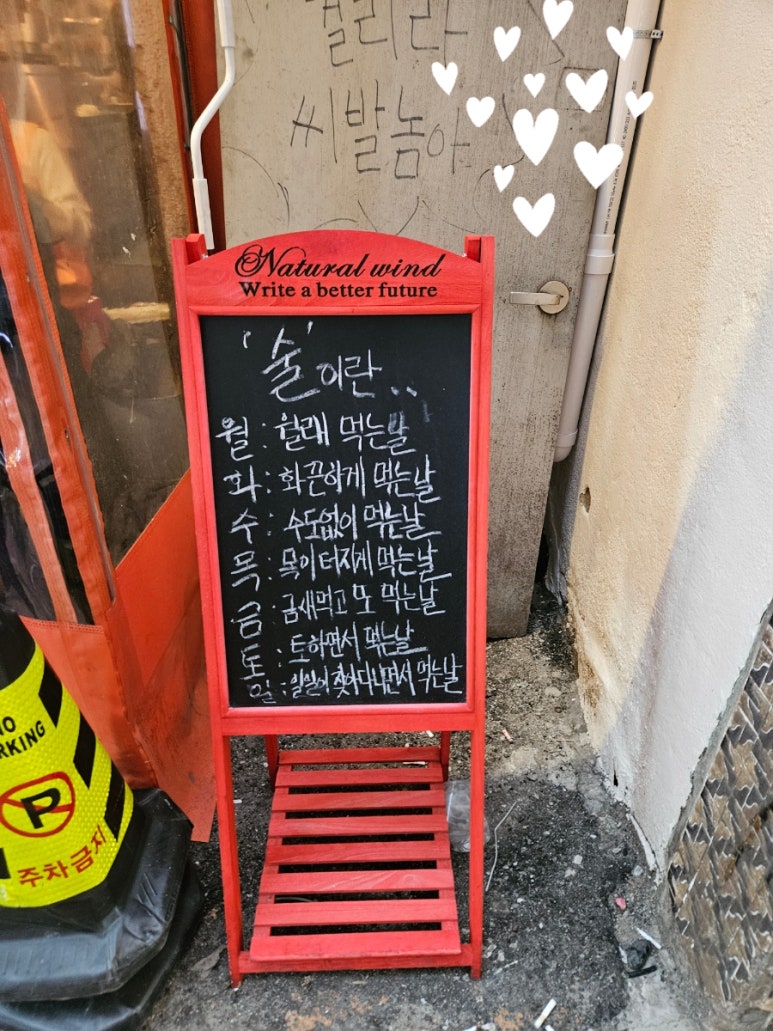 씨발놈아
Natural wind
Write a better future
'술'이란..
월 : 월래 먹는날
화 : 화끈하게 먹는날
수 : 수도없이 먹는날
목 : 목이 터지게 먹는날
금 : 금새먹고 또 먹는날
토 : 토하면서 먹는날
일 : 일일이 찾아다니면서 먹는날
NO
PARKING
P
주차금지